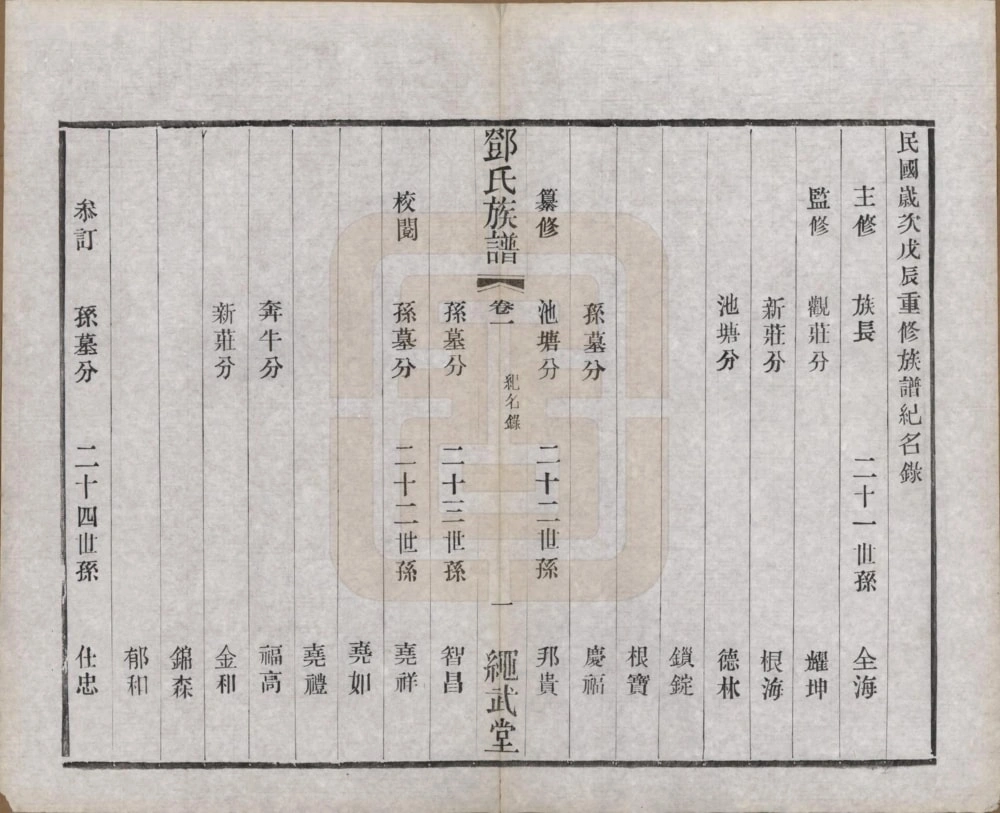 民國歲次戊辰重修族譜紀名錄
主修 族長 二十一世孫 全海
監修 觀莊分 耀坤
新莊分 根海
池塘分 德林
鎖錠
根寶
孫墓分 慶福
纂修 池塘分 二十二世孫 邦貴
鄧氏族譜 卷一 紀名錄 一 繩武堂
孫墓分 二十三世孫 智昌
校閱 孫墓分 二十二世孫 堯祥
堯如
堯禮
奔牛分 福高
新莊分 金和
錦森
郁和
叅訂 孫墓分 二十四世孫 仕忠